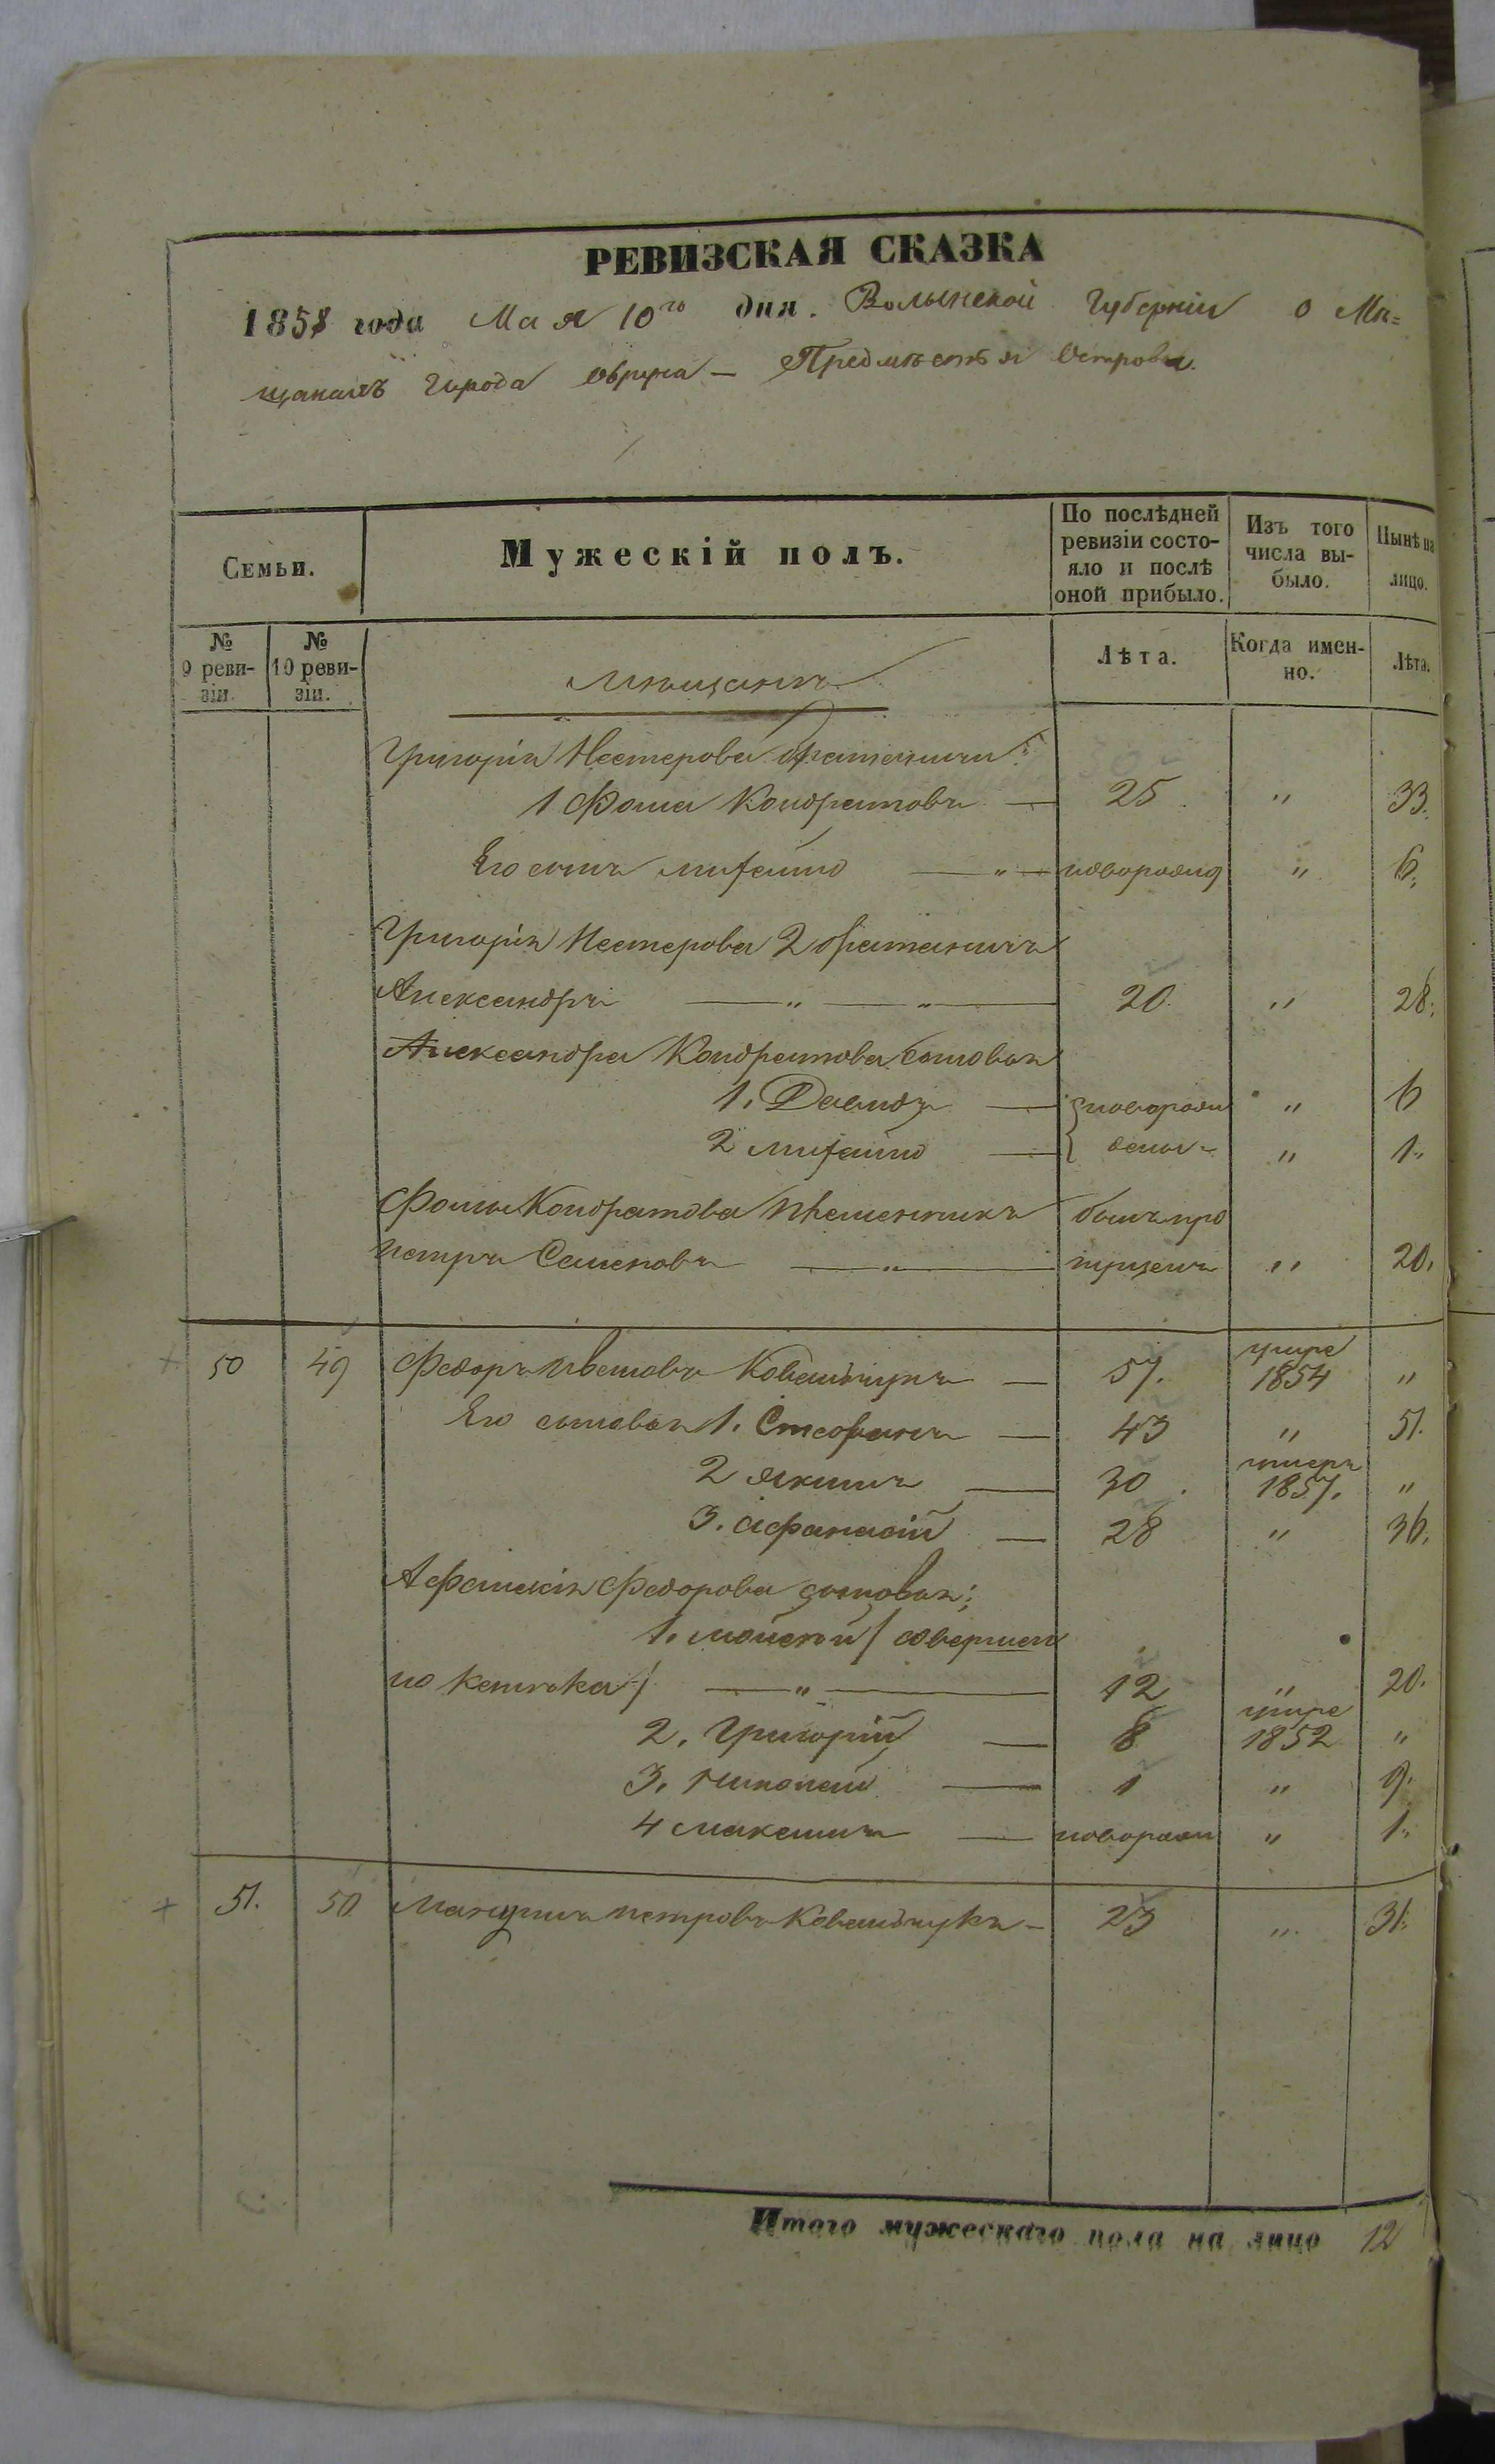 РЕВИЗСКАЯ СКАЗКА
1858 года Мая 10го дня. Волынской Губерніи о Мѣ=
щанахъ города Овруча — Предмѣстья Острова.
Семьи.
Мужескій полъ.
По послѣдней ревизіи состо-
яло и послѣ оной прибыло.
Изъ того числа вы-
было.
Нынѣ на лицо.
№ 9 реви-
зіи.
№ 10 реви-
зіи.
Мѣщанъ
Лѣта.
Когда имен-
но.
Лѣта.
Григорія Нестерова братаничи:
1 Фома Кондратовъ — 25 " 33.
Его сынъ Михайло — " — новорожд " 6.
Григорія Нестерова 2 братаничъ
Александръ — " — " — 20. " 28.
Александра Кондратова сыновья
1. Давидъ — новорож " 6
2 Михайло — дены " 1.
Фомы Кондратова племенникъ былъ про
Петръ Семеновъ — " — пущенъ " 20.
50 49 Федоръ Ивановъ Ковальчукъ — 57. умре 1854 "
Его сыновья 1. Стефанъ — 43 " 51.
2 Якимъ — 30. умеръ 1857. "
3. Афанасій — 28 " 36.
Афанасія Федорова сыновья:
1. Мойсей / совершен
но калѣка / — " — 12 " 20.
2. Григорій — 8 умре 1852 "
3. Николай — 1 " 9.
4 Максимъ — новорож " 1.
51. 50 Петровъ Ковальчукъ — 23 " 31.
Итого мужескаго пола на лицо 12